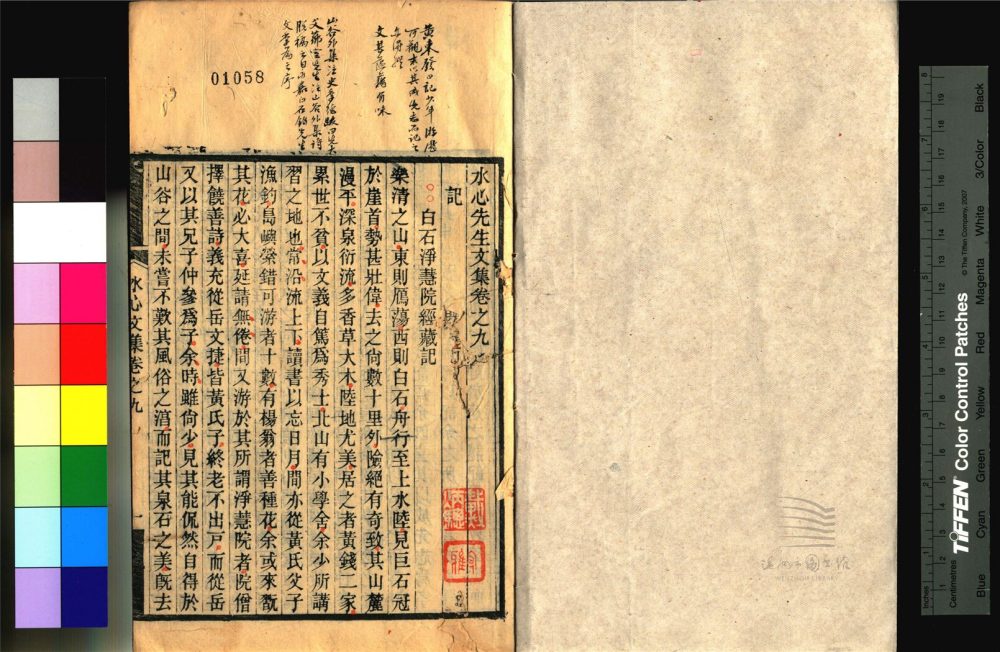 黄東發日記少年
山谷外集注
01058
水心先生文集卷之九
記
○○白石淨慧院經藏記
樂清之山東則鴈蕩西則白石舟行至上水陸見巨石冠
於崖首勢甚壯偉去之尙數十里外險絕有奇致其山麓
漫平深泉衍流多香草大木陸地尤美居之者黃錢二家
累世不貧以文義自篤爲秀士北山有小學舍余少所講
習之地也常沿流上下讀書以忘日月間亦從黃氏父子
漁釣島嶼縈錯可游者十數有楊翁者善種花余或來翫
其花必大喜延請無倦間又游於其所謂淨慧院者院僧
擇饒善詩義充從岳文捷皆黃氏子終老不出戸而從岳
又以其兄子仲參爲子余時雖尙少見其能侃然自得於
山谷之間未嘗不歎其風俗之湻而記其泉石之美旣去
水心文集卷之九
一
溫州市圖書館
WENZHOU LIBRARY
Inches
Centimetres
TIFFEN Color Control Patches
© The Tiffen Company, 2007
Blue
Cyan
Green
Yellow
Red
Magenta
White
3/Color
Black